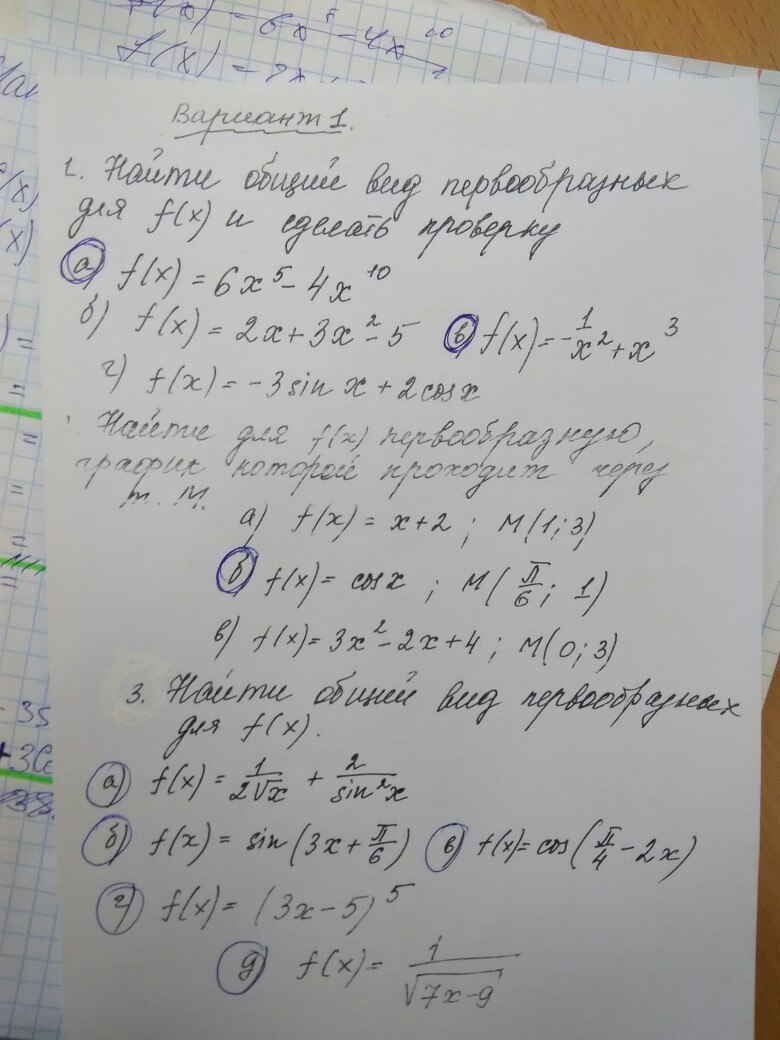 f(x) = 6x⁵ - 4x¹⁰
f(x) =
Вариант 1.
1. Найти общий вид первообразных
для f(x) и сделать проверку
а) f(x) = 6x⁵ - 4x¹⁰
б) f(x) = 2x + 3x² - 5 в) f(x) = -1/x² + x³
г) f(x) = -3 sin x + 2 cos x
Найти для f(x) первообразную,
график которой проходит через
т. М.
а) f(x) = x + 2 ; M(1; 3)
б) f(x) = cos x ; M(π/6; 1)
в) f(x) = 3x² - 2x + 4 ; M(0; 3)
3. Найти общий вид первообразных
для f(x).
а) f(x) = 1/(2√x) + 2/sin²x
б) f(x) = sin(3x + π/6) в) f(x) = cos(π/4 - 2x)
г) f(x) = (3x - 5)⁵
д) f(x) = 1/√(7x - 9)